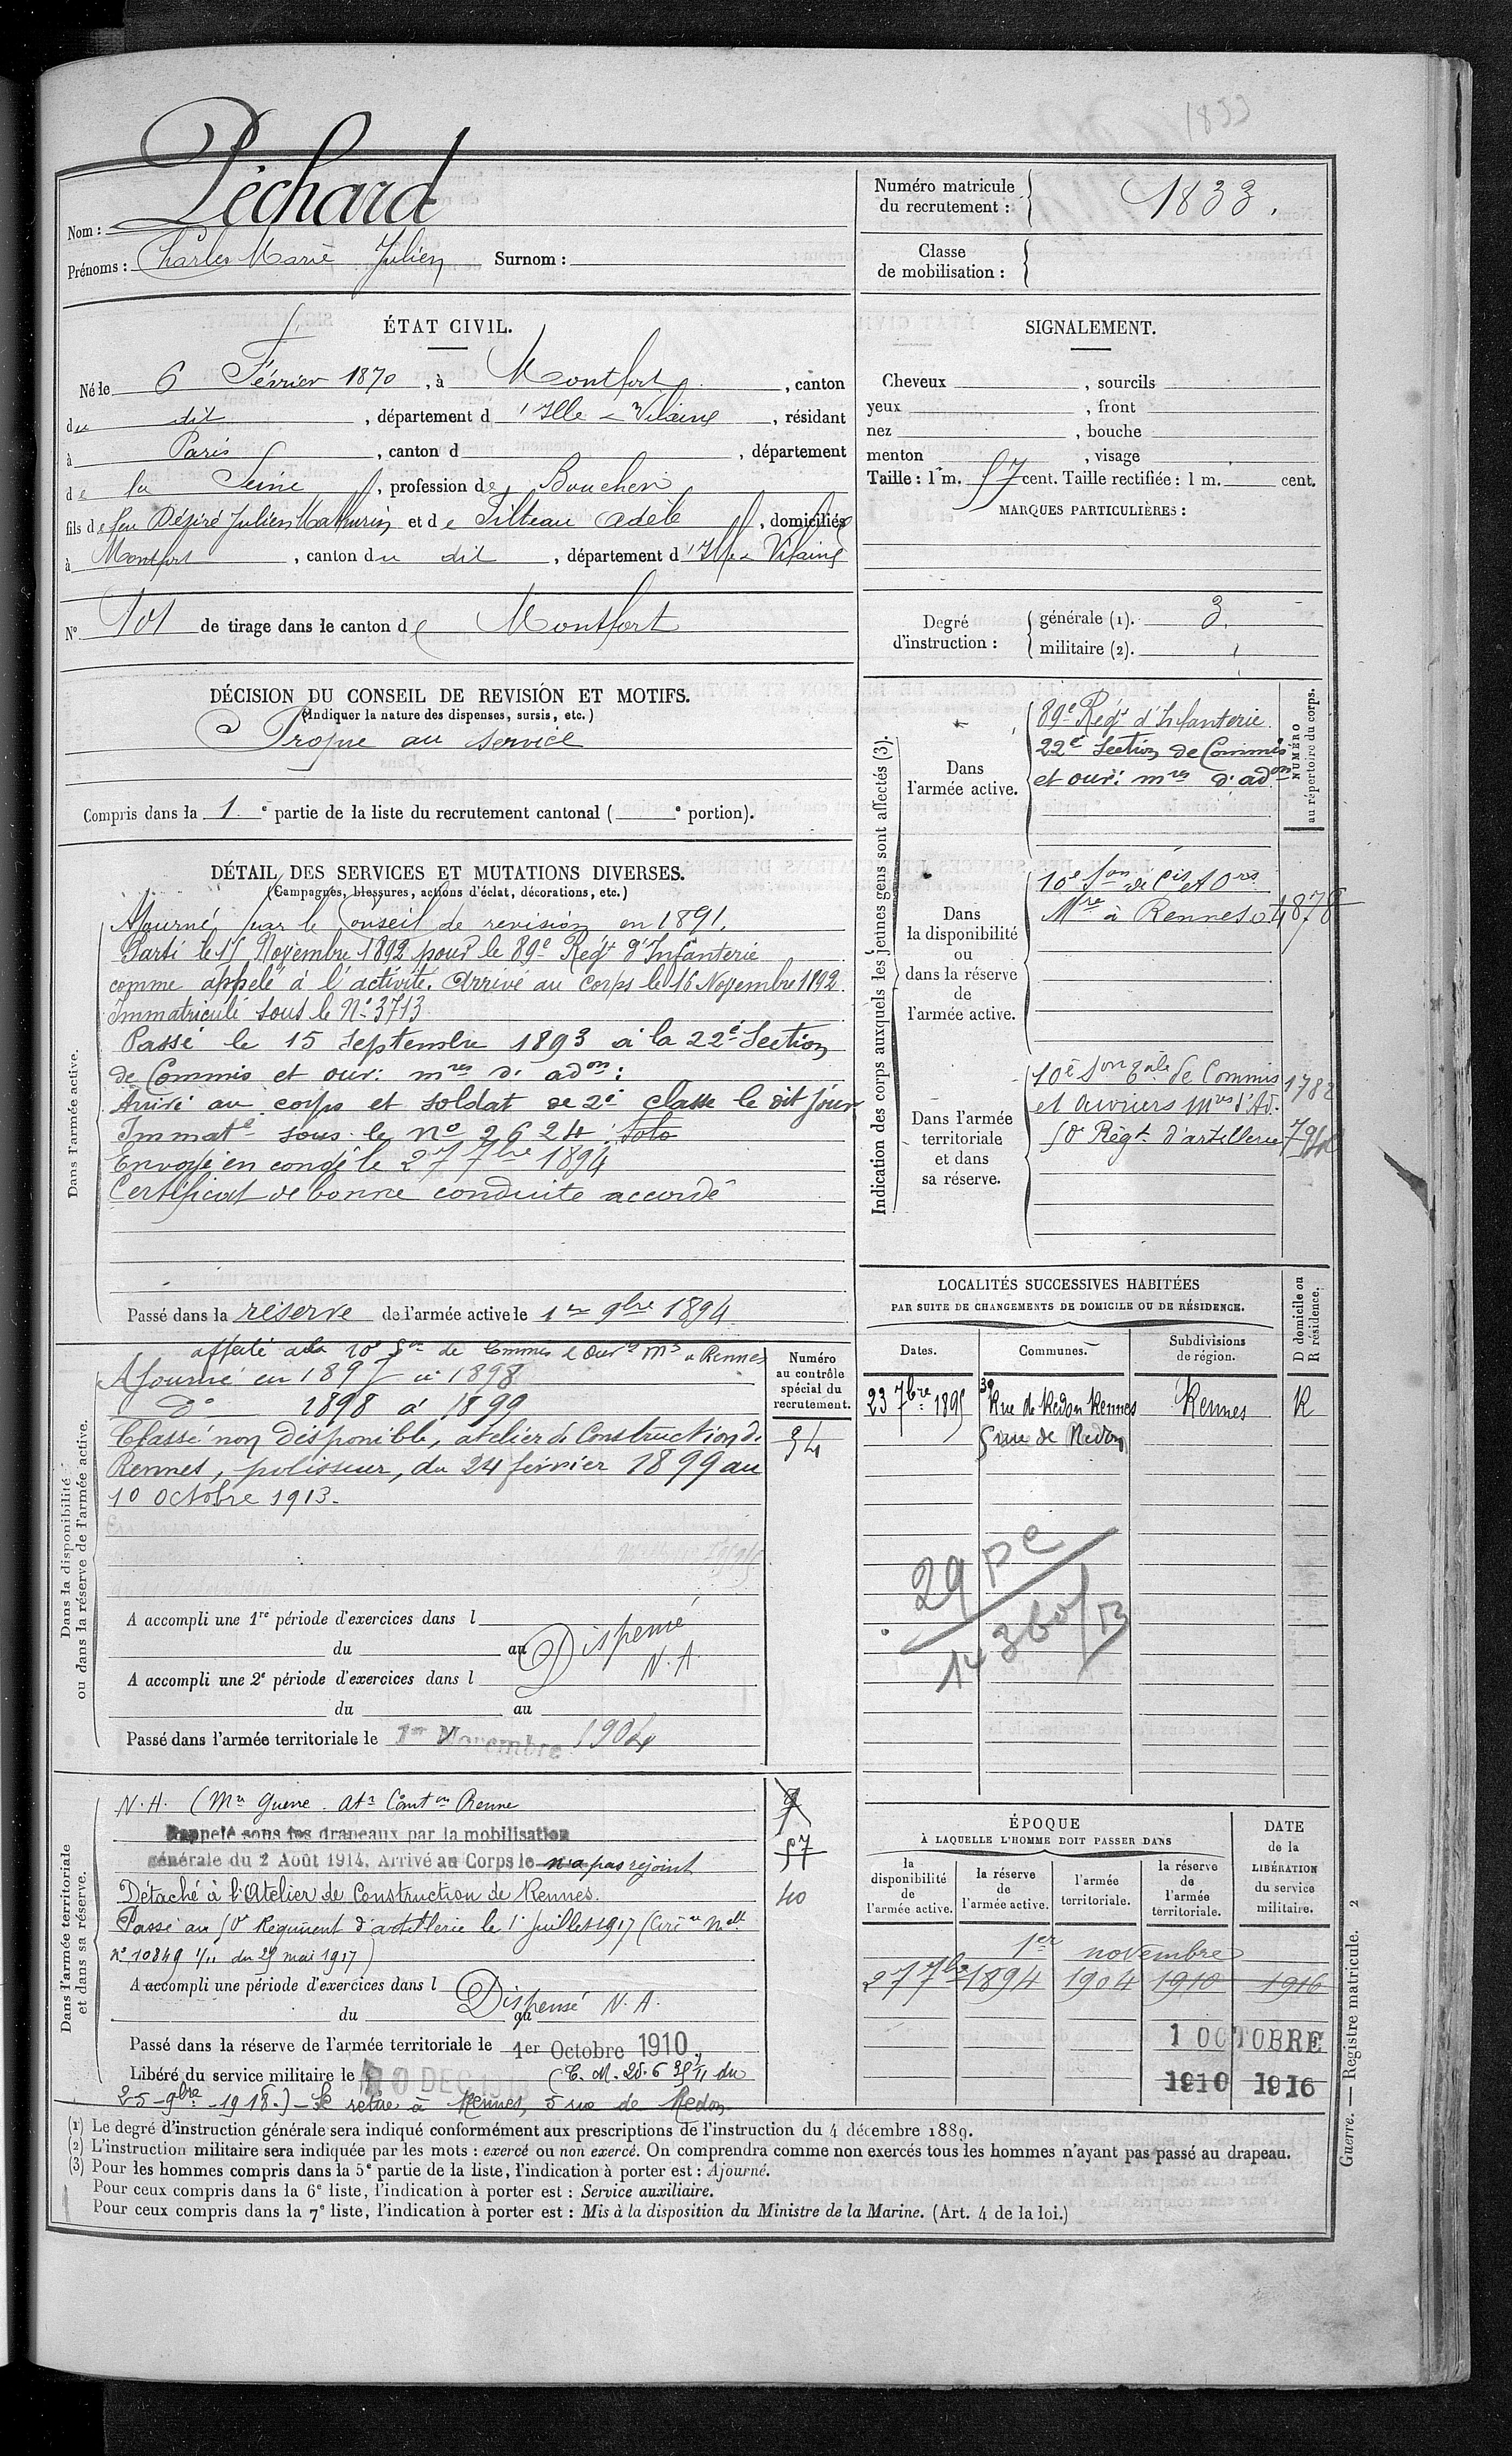 1833
Nom : Péchard
Prénoms : Charles Marie Julien Surnom :
Numéro matricule du recrutement : 1833.
Classe de mobilisation :
ÉTAT CIVIL.
Né le 6 Février 1870, à Montfort, canton
du dit, département d'Ille-&-Vilaine, résidant
à Paris, canton d , département
de la Seine, profession de Boucher
fils de feu Désiré Julien Mathurin et de Tilteau Adèle, domiciliés
à Montfort, canton du dit, département d'Ille-&-Vilaine
N° 101 de tirage dans le canton de Montfort
SIGNALEMENT.
Cheveux , sourcils
yeux , front
nez , bouche
menton , visage
Taille : 1 m. 57 cent. Taille rectifiée : 1 m. cent.
MARQUES PARTICULIÈRES :
Degré d'instruction :
générale (1). 3.
militaire (2).
DÉCISION DU CONSEIL DE REVISION ET MOTIFS.
(Indiquer la nature des dispenses, sursis, etc.)
Propre au service
Compris dans la 1.e partie de la liste du recrutement cantonal ( e portion).
DÉTAIL DES SERVICES ET MUTATIONS DIVERSES.
(Campagnes, blessures, actions d'éclat, décorations, etc.)
Dans l'armée active.
Ajourné par le Conseil de revision en 1891.
Parti le 15 Novembre 1892 pour le 89e Régt d'Infanterie
comme appelé à l'activité. Arrivé au Corps le 16 Novembre 1892.
Immatriculé sous le N° 3713
Passé le 15 Septembre 1893 à la 22e Section
de Commis et ouv: mres d'adon:
Arrivé au corps et soldat de 2e classe le dit jour
Immatlé sous le no 2624.
Envoyé en congé le 27 7bre 1894
Certificat de bonne conduite accordé
Passé dans la réserve de l'armée active le 1er 9bre 1894
Indication des corps auxquels les jeunes gens sont affectés (3).
NUMÉRO au répertoire du corps.
Dans l'armée active.
89e Régt d'Infanterie.
22e Section de Commis
et ouv: mres d'adon
Dans la disponibilité ou dans la réserve de l'armée active.
10e Son de Cis et Ors
Mre à Rennes 4878
Dans l'armée territoriale et dans sa réserve.
10e Son Tale de Commis 1782
et Ouvriers Mres d'Ad.
50e Régt d'artillerie
Dans la disponibilité ou dans la réserve de l'armée active.
affecté à la 10e Son de Commis & Ouvrs Ms à Rennes
Ajourné en 1897 à 1898
Do 1898 à 1899
Classé non disponible, atelier de Construction de
Rennes, polisseur, du 24 février 1899 au
10 octobre 1913.
Numéro au contrôle spécial du recrutement.
54
A accompli une 1re période d'exercices dans l
du au
Dispensé N.A.
A accompli une 2e période d'exercices dans l
du au
Passé dans l'armée territoriale le 1er Novembre 1904
LOCALITÉS SUCCESSIVES HABITÉES
PAR SUITE DE CHANGEMENTS DE DOMICILE OU DE RÉSIDENCE.
D domicile ou R résidence.
Dates. Communes. Subdivisions de région.
23 7bre 1895 39 Rue de Redon Rennes Rennes R
5 rue de Redon
Dans l'armée territoriale et dans sa réserve.
Rappelé sous les drapeaux par la mobilisation
générale du 2 Août 1914. Arrivé au Corps le n'a pas rejoint
Détaché à l'Atelier de Construction de Rennes.
Passé au 50e Régiment d'artillerie le 1er Juillet 1917 (Cire Melle
N° 10849 1/11 du 29 mai 1917)
57
40
A accompli une période d'exercices dans l
du au
Dispensé N.A.
Passé dans la réserve de l'armée territoriale le 1er Octobre 1910.
Libéré du service militaire le 10 DEC (C.M.
25-9bre-1918.)-Se retire à Rennes, 5 rue de Redon
ÉPOQUE
À LAQUELLE L'HOMME DOIT PASSER DANS
DATE de la LIBÉRATION du service militaire.
la disponibilité de l'armée active. la réserve de l'armée active. l'armée territoriale. la réserve de l'armée territoriale.
1er novembre
27 7bre 1894 1904 1910 1916
1 OCTOBRE
1910 1916
(1) Le degré d'instruction générale sera indiqué conformément aux prescriptions de l'instruction du 4 décembre 1889.
(2) L'instruction militaire sera indiquée par les mots : exercé ou non exercé. On comprendra comme non exercés tous les hommes n'ayant pas passé au drapeau.
(3) Pour les hommes compris dans la 5e partie de la liste, l'indication à porter est : Ajourné.
Pour ceux compris dans la 6e liste, l'indication à porter est : Service auxiliaire.
Pour ceux compris dans la 7e liste, l'indication à porter est : Mis à la disposition du Ministre de la Marine. (Art. 4 de la loi.)
Guerre. — Registre matricule. 2